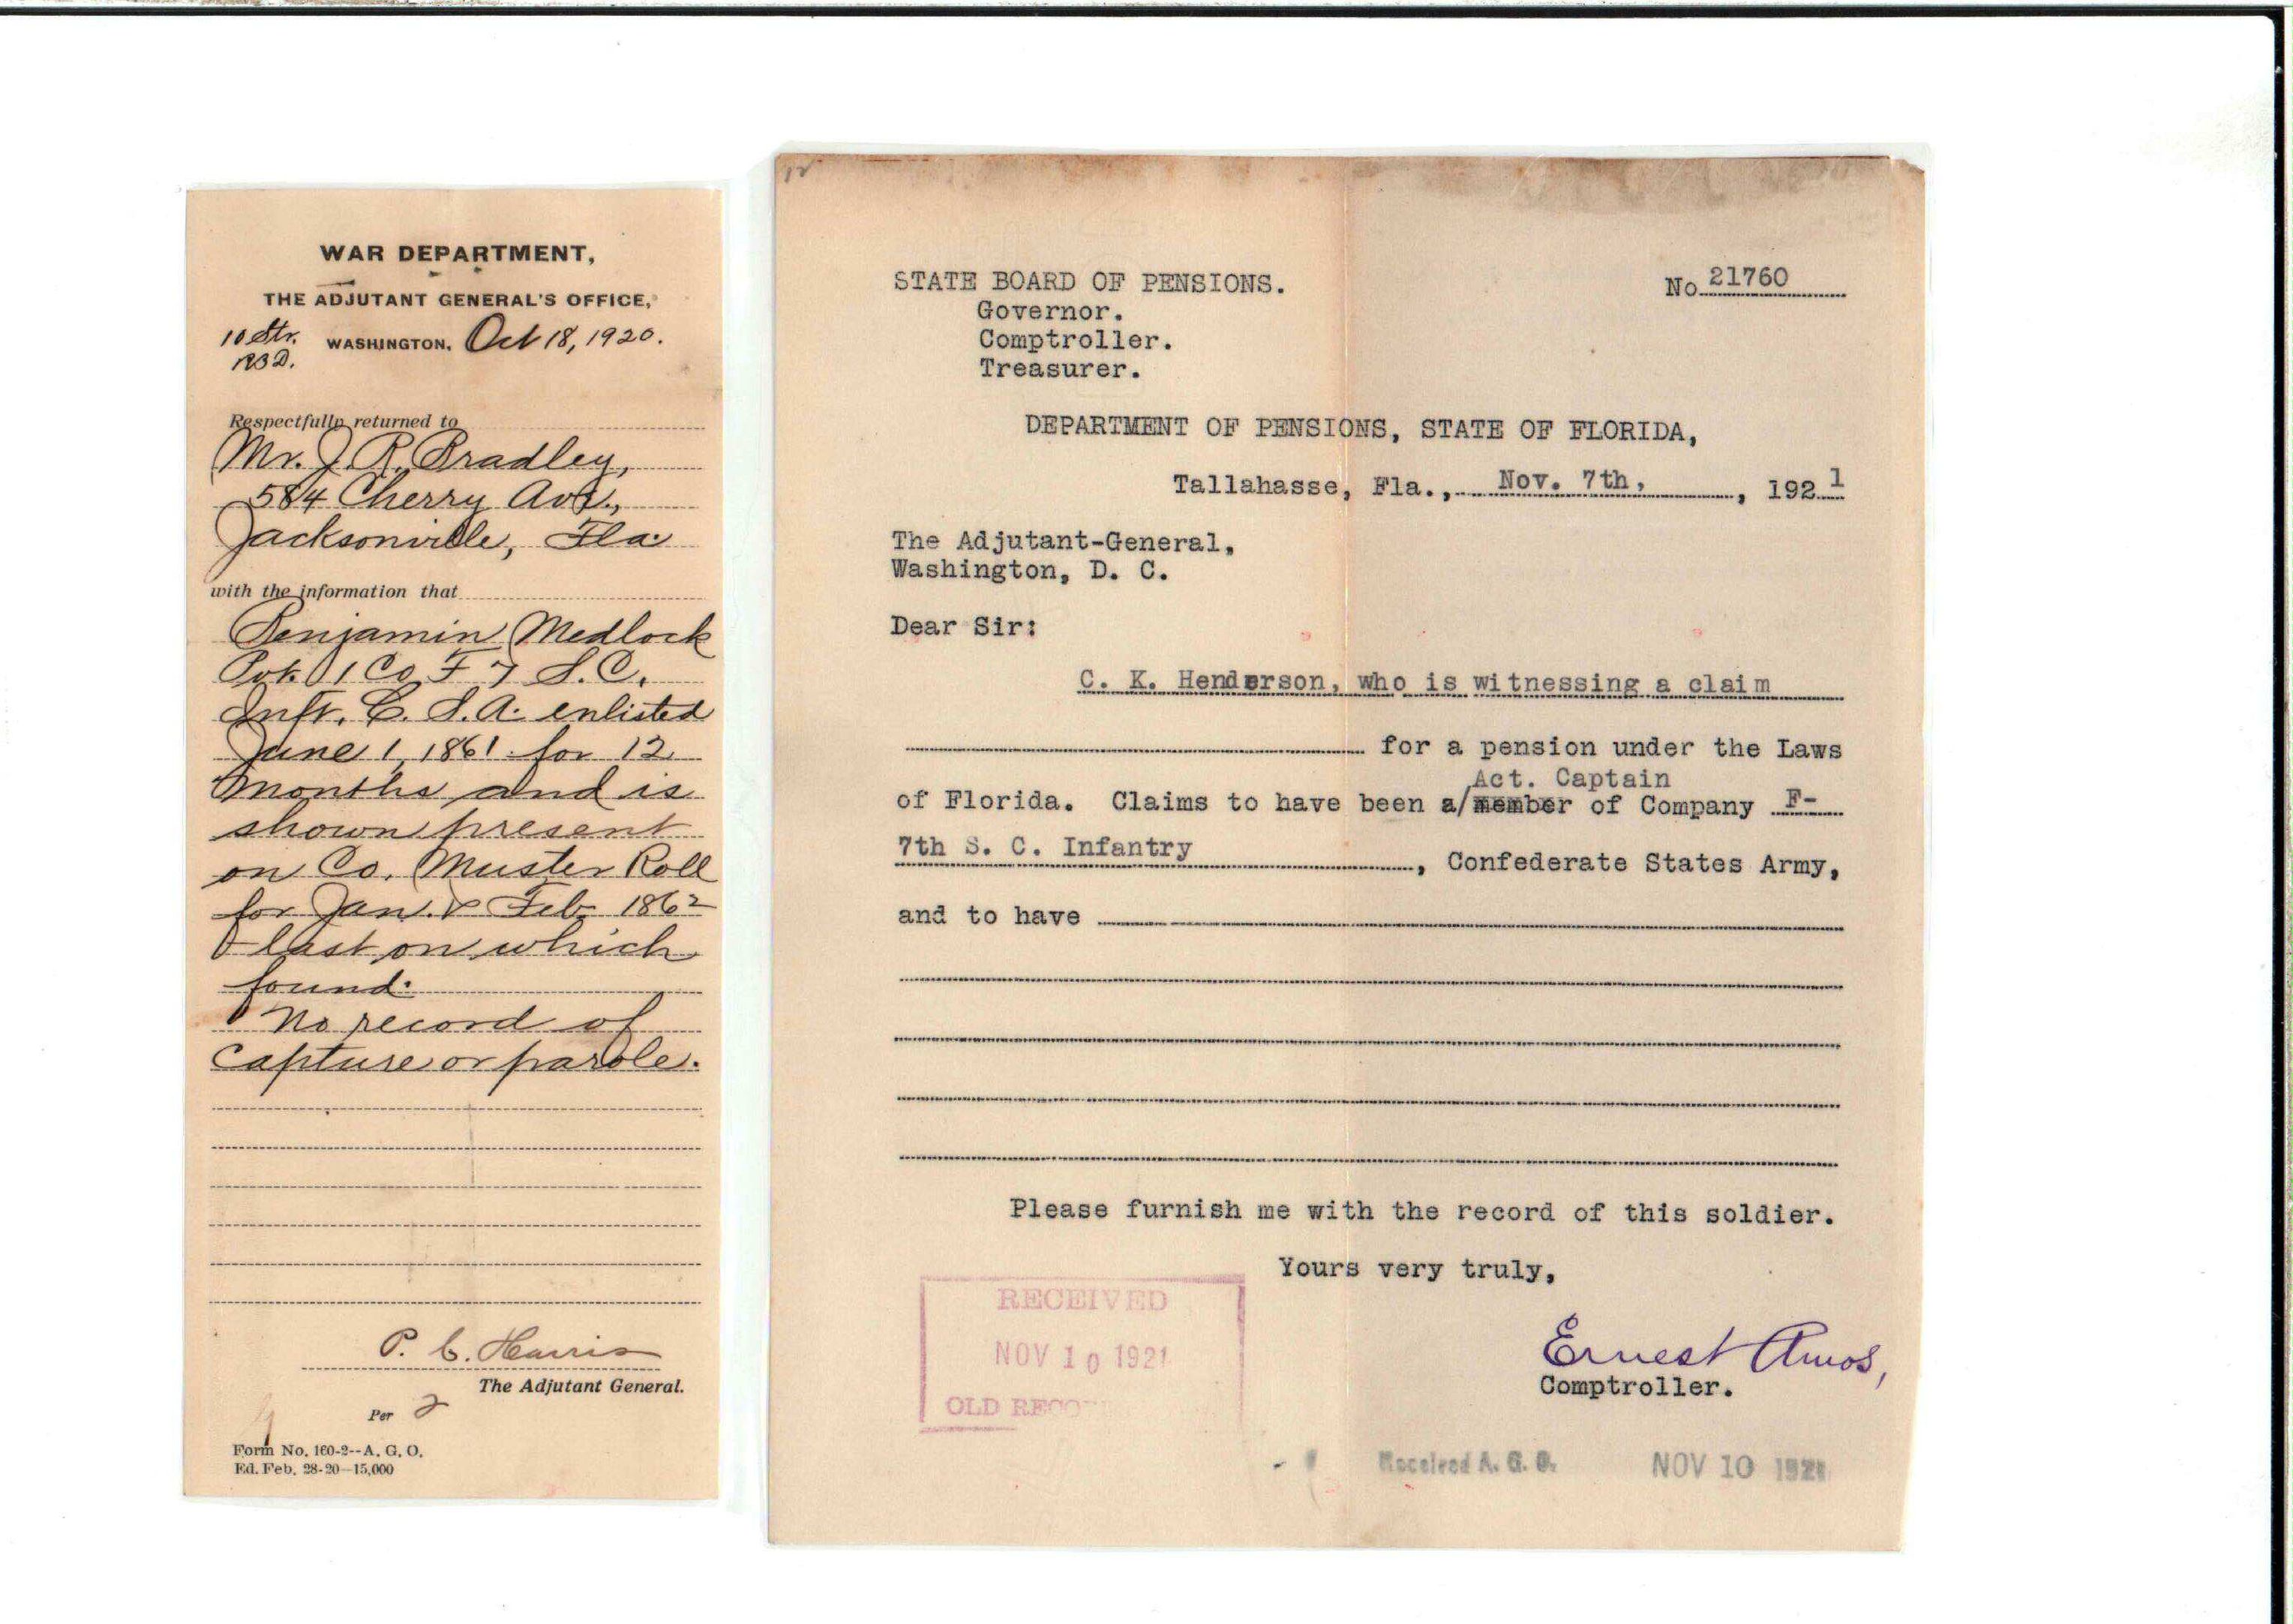 WAR DEPARTMENT,
THE ADJUTANT GENERAL'S OFFICE,
10 Str. WASHINGTON, Oct 18, 1920.
Respectfully returned to
Mr. J. R. Bradley,
584 Cherry Ave.,
Jacksonville, Fla.
with the information that
Benjamin Medlock
Pvt. Co F 7 S.C.
Inft. C. S. A. enlisted
June 1, 1861 for 12
months and is
shown present
on Co. Muster Roll
for Jan. & Feb. 1862
last on which
found.
No record of
capture or parole.
P. C. Harris
The Adjutant General.
Per
Form No. 160-2--A. G. O.
Ed. Feb. 28-20—15,000
STATE BOARD OF PENSIONS.
No 21760
Governor.
Comptroller.
Treasurer.
DEPARTMENT OF PENSIONS, STATE OF FLORIDA,
Tallahasse, Fla., Nov. 7th, , 1921
The Adjutant-General,
Washington, D. C.
Dear Sir:
C. K. Henderson, who is witnessing a claim
for a pension under the Laws
Act. Captain
of Florida. Claims to have been a/member of Company F-
7th S. C. Infantry , Confederate States Army,
and to have
Please furnish me with the record of this soldier.
Yours very truly,
Ernest Amos,
Comptroller.
RECEIVED
NOV 10 1921
OLD
Received A. G. O. NOV 10 1921